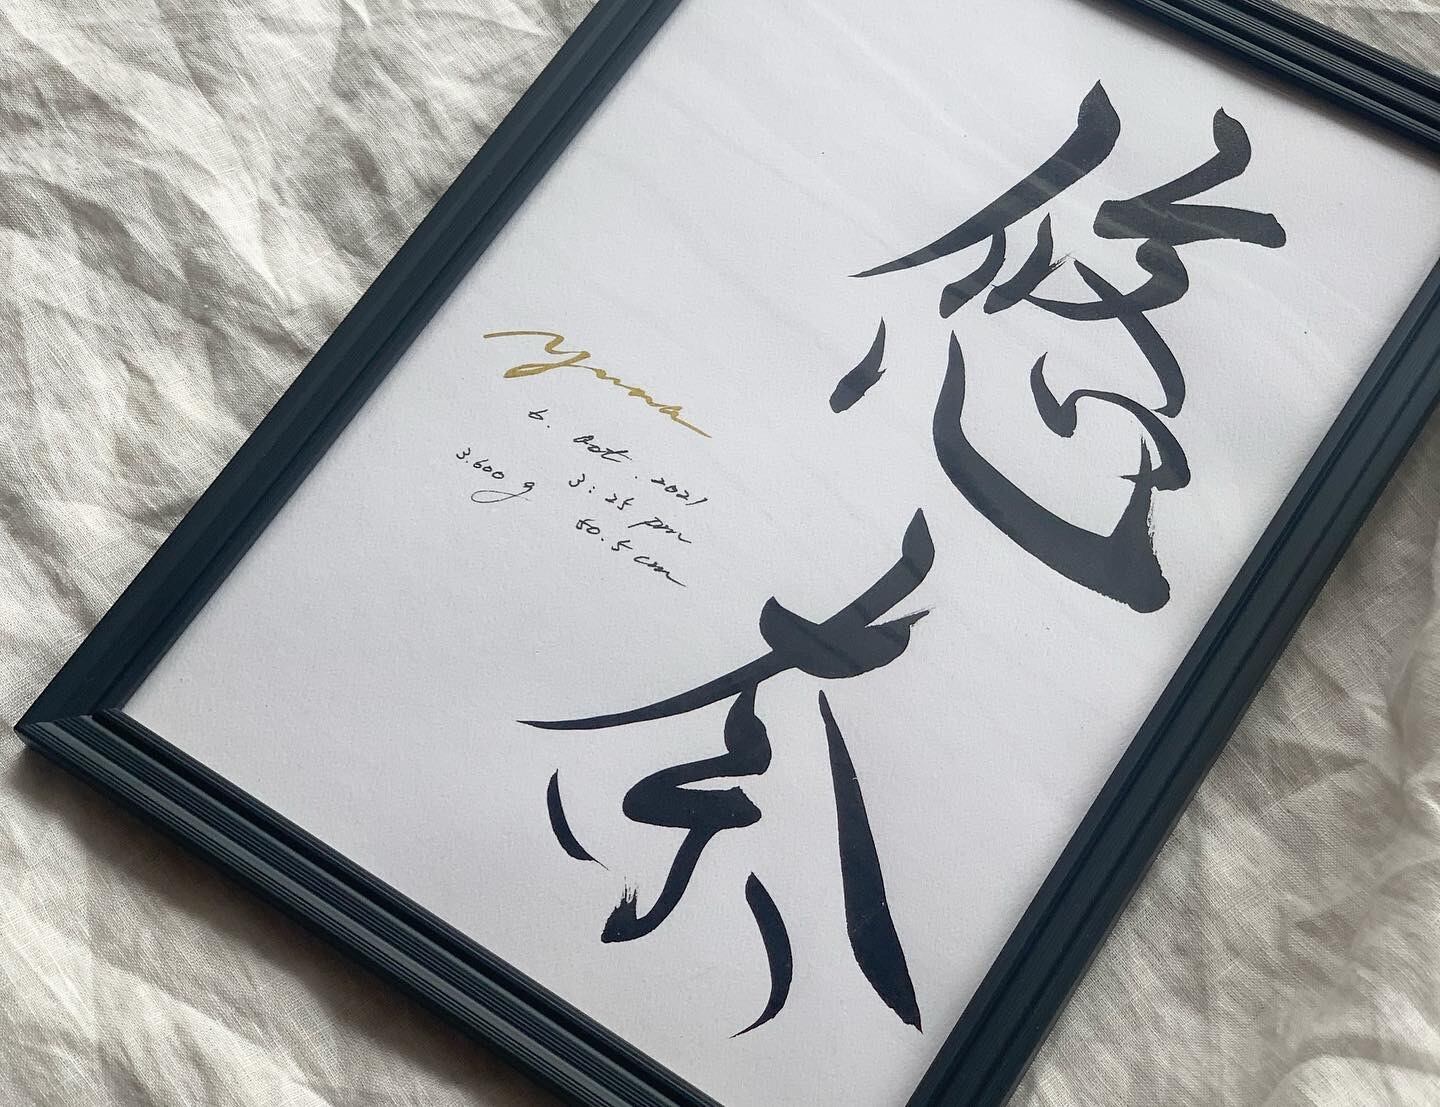 悠奈
Yuna
6. Oct. 2021
3:25 pm
3.600 g 50.5 cm